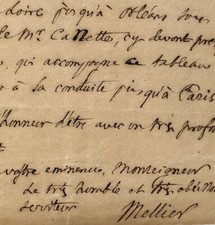 Loire jusqu'à Orléans sous
le Mr. Calettes, cy devant pre
, qui accompagne ce tableau
r à sa conduite jusqu'à Paris
l'honneur d'être avec un très profon
votre eminence, Monseigneur
Le très humble et très obeiss
serviteur Mellier